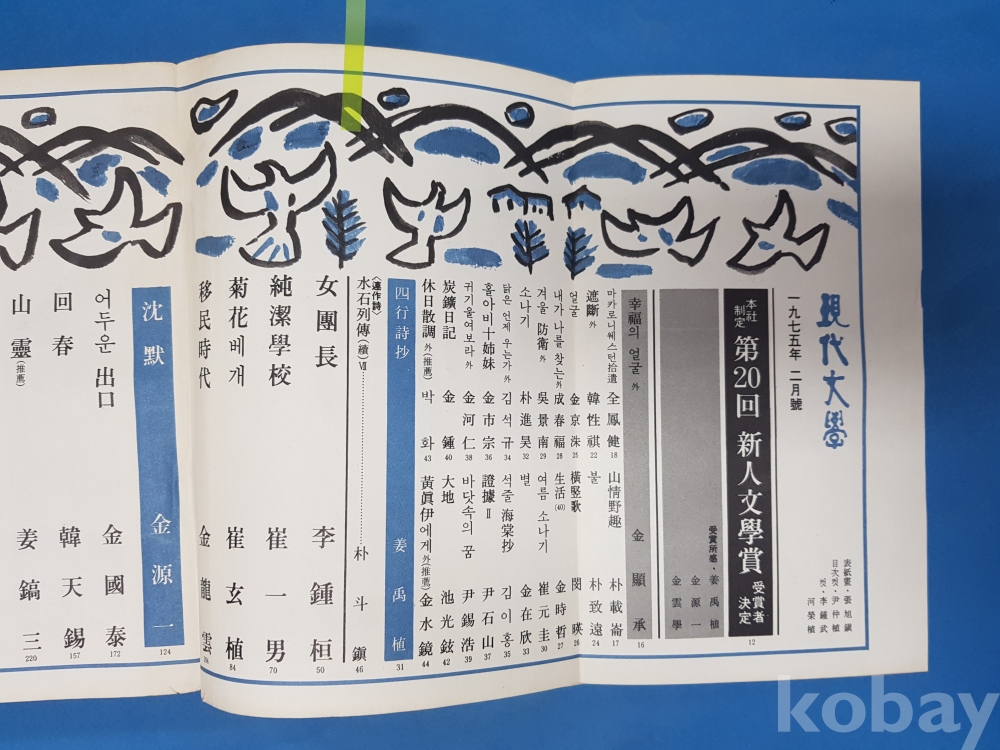 現代文學
一九七五年 二月號
表紙畫・張旭鎭
目次컷・尹仲植
컷・李鍾武
河榮植
本社制定 第20回 新人文學賞 受賞者決定 12
受賞所感・姜禹植
金源一
金雲學
幸福의 얼굴 外 金顯承 16
마카로니웨스턴拾遺 全鳳健 18
山情野趣 朴載崙 17
遮斷 外 韓性祺 22
불 朴致遠 24
얼굴 外 金京洙 25
橫竪歌 閔暎 26
내가 나를 찾는 外 成春福 28
生活(40) 金時哲 27
겨울 防衛 外 吳景南 29
여름 소나기 崔元圭 30
소나기 朴進昊 32
별 金在欣 33
닭은 언제 우는가 外 김석규 34
석줄 海棠抄 김이홍 35
홀아비十姉妹 金市宗 36
證據Ⅱ 尹石山 37
귀기울여보라 外 金河仁 38
바닷속의 꿈 尹錫浩 39
炭鑛日記 金鍾 40
大地 池光鉉 42
休日散調 外(推薦) 박화 43
黃眞伊에게 外(推薦) 金水鏡 44
四行詩抄 姜禹植 31
〈連作詩〉
水石列傳(續)Ⅶ 朴斗鎭 46
女團長 李鍾桓 50
純潔學校 崔一男 70
菊花베개 崔玄植 84
移民時代 金龍雲
沈默 金源一 124
어두운 出口 金國泰 172
回春 韓天錫 157
山靈(推薦) 姜鎬三 220
kobay